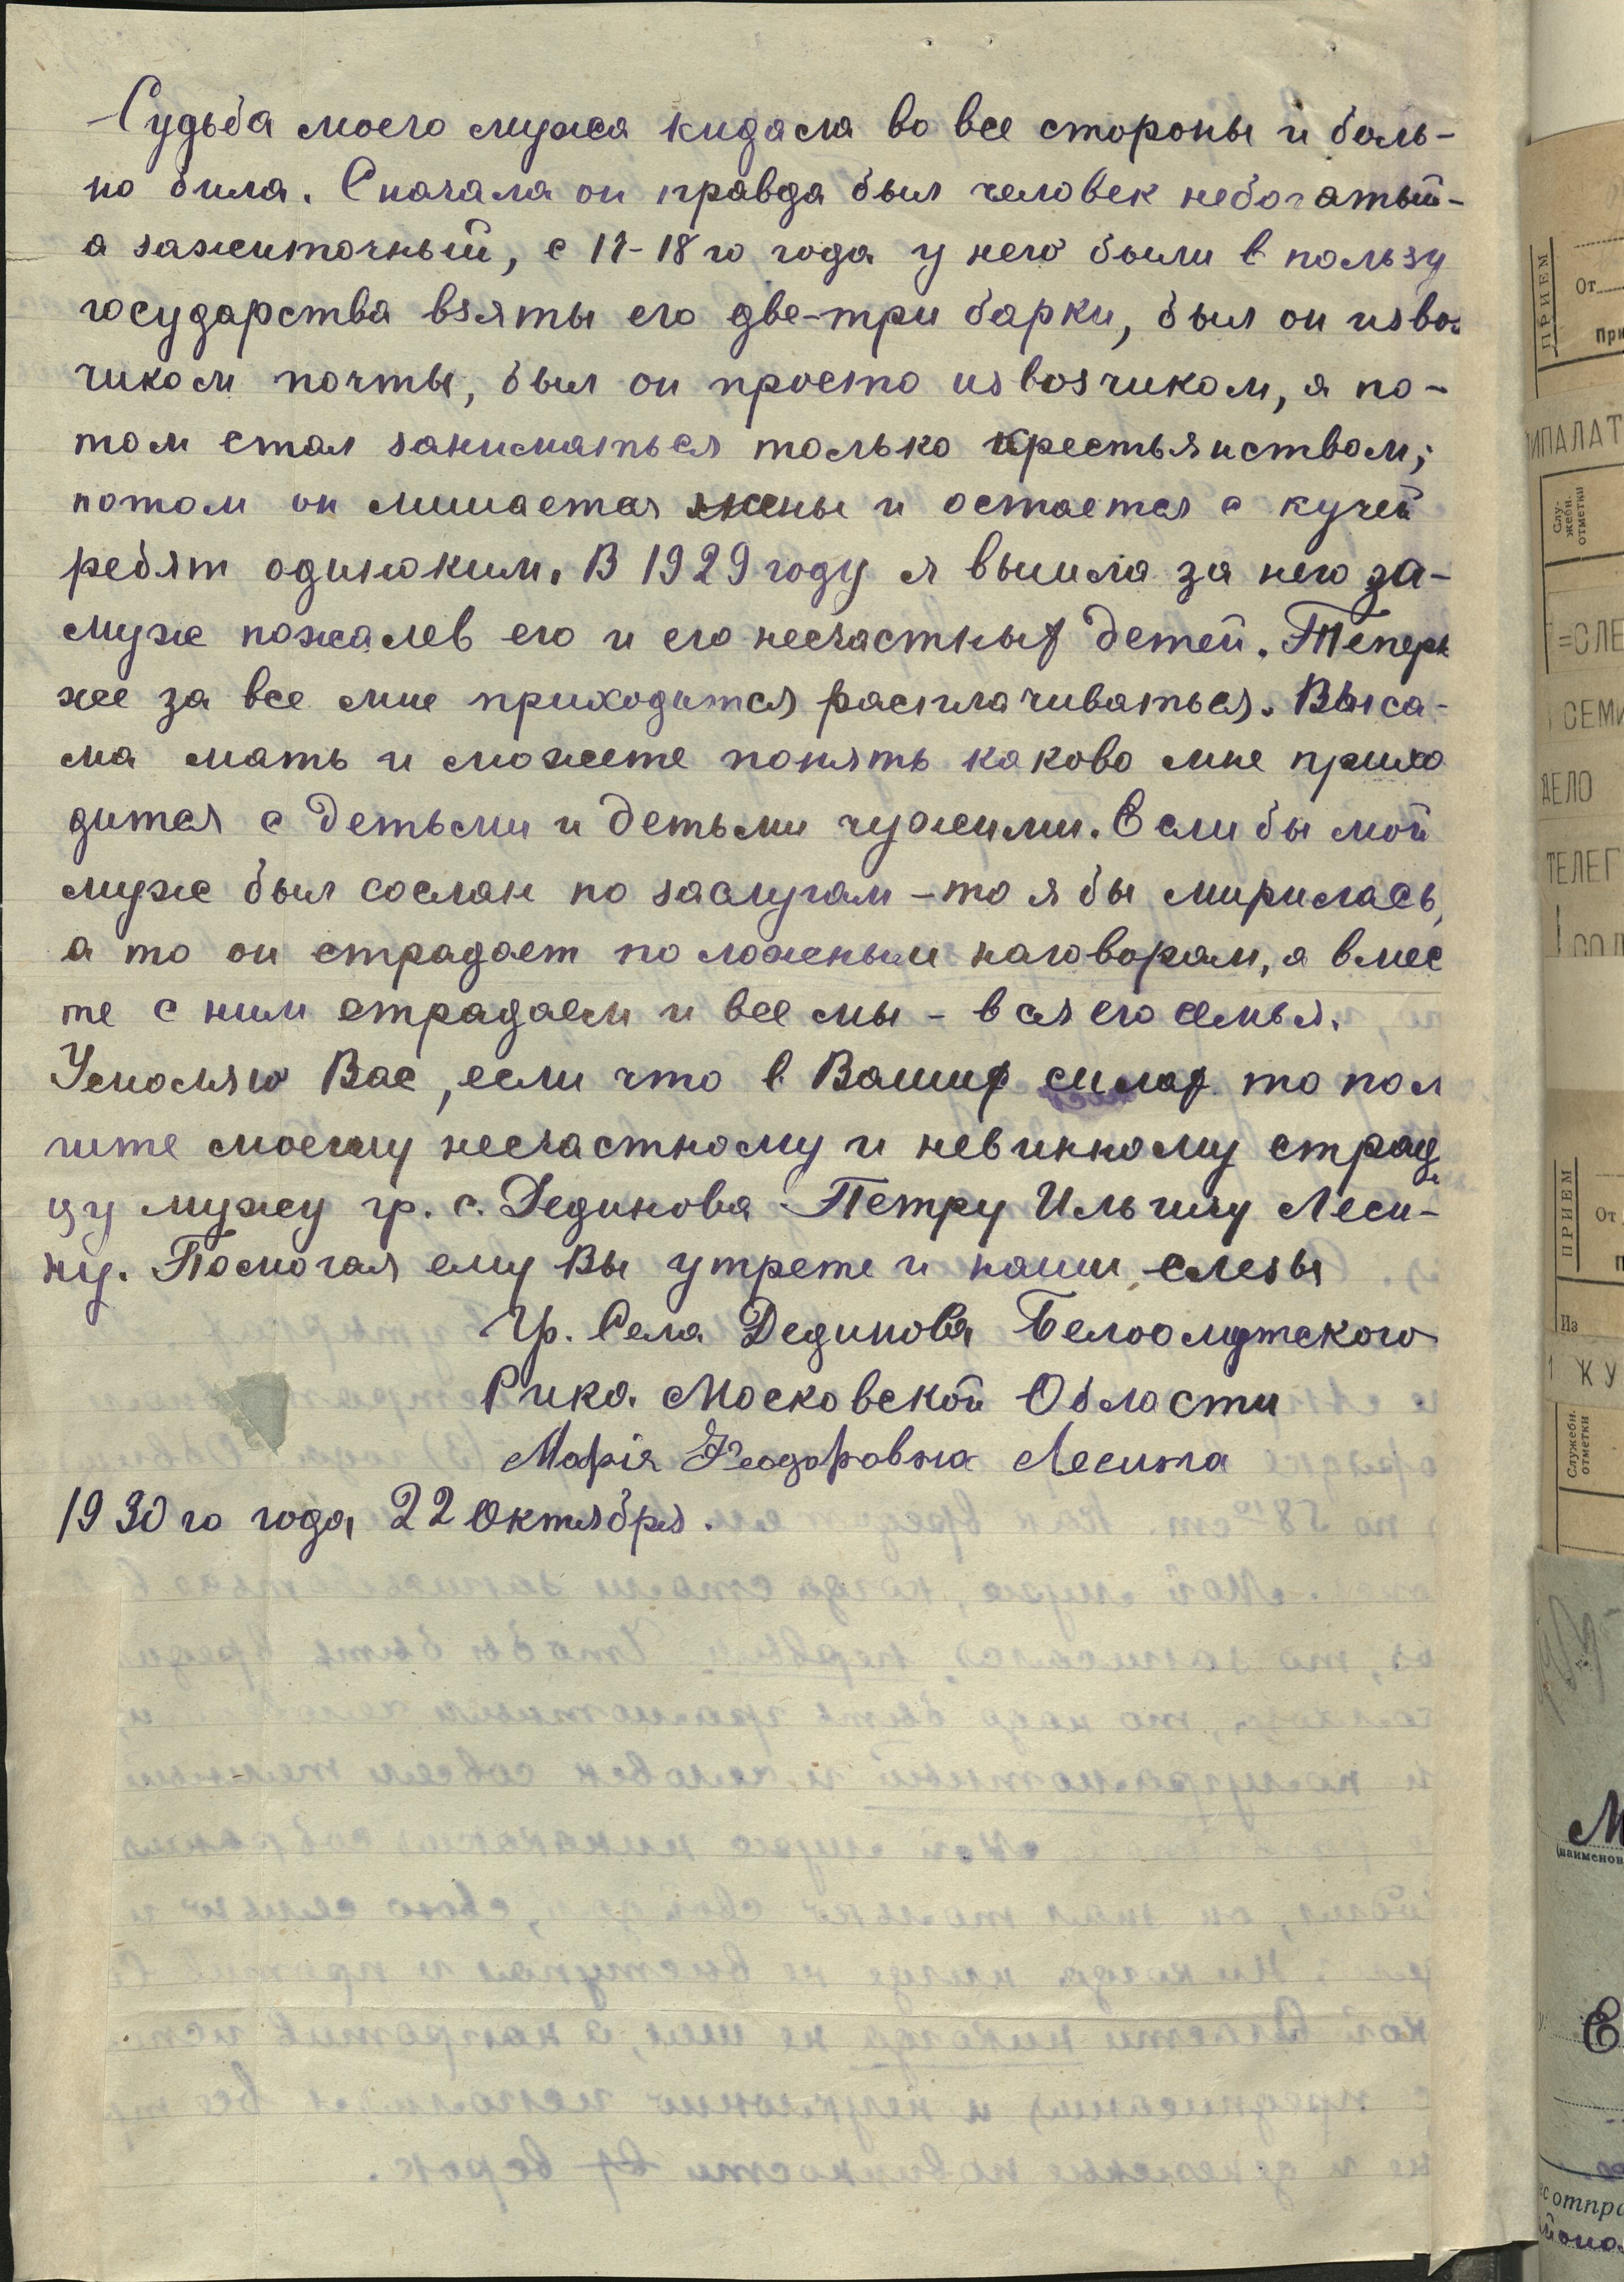 Судьба моего мужа кидала во все стороны и боль-
но била. Сначала он правда был человек небогатый-
а зажиточный, с 17-18го года у него были в пользу
государства взяты его две-три барки, был он извоз
чиком почты, был он просто извозчиком, а по-
том стал заниматься только крестьянством;
потом он лишается жены и остается с кучей
ребят одиноким. В 1929 году я вышла за него за-
муж пожалев его и его несчастных детей. Теперь
же за все мне приходится расплачиваться. Вы са-
ма мать и можете понять каково мне прихо
дится с детьми и детьми чужими. Если бы мой
муж был сослан по заслугам - то я бы мирилась,
а то он страдает по ложным наговорам, а вмес
те с ним страдаем и все мы - вся его семья.
Умоляю Вас, если что в Ваших силах то пом
гите моему несчастному и невинному страд
цу мужу гр. с. Дединова Петру Ильичу Леси-
ну. Помогая ему Вы утрете и наши слезы
Гр. Села Дединова Белоомутского
Рика Московской Области
Марія Феодоровна Лесина
1930го года, 22 Октября.
ПРИЕМ
От
При
Слу-
жебн.
отметки
=СЛЕ
СЕМИ
ДЕЛО
ТЕЛЕГ
ПРИЕМ
От
П
Из
1 КУ
Служебн.
отметки
М
(наименов
Е
отпра